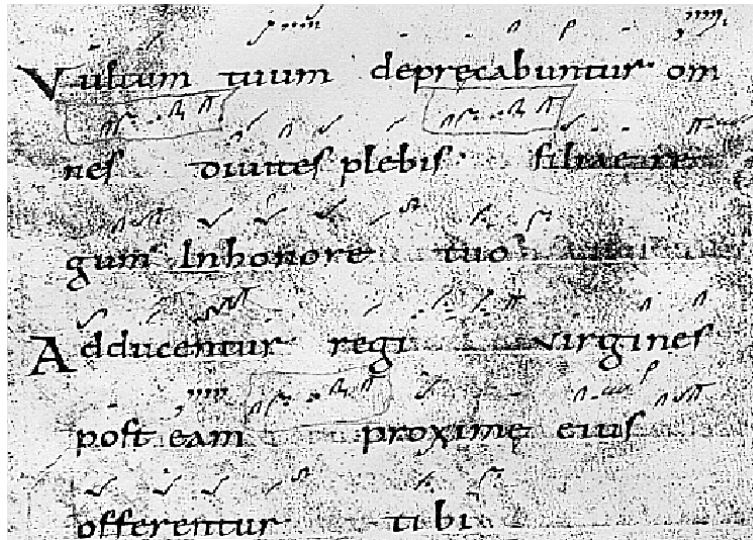 Vultum tuum deprecabuntur om
nes diuites plebis filiae re
gum In honore tuo
Adducentur regi virgines
post eam proxime eius
offerentur tibi